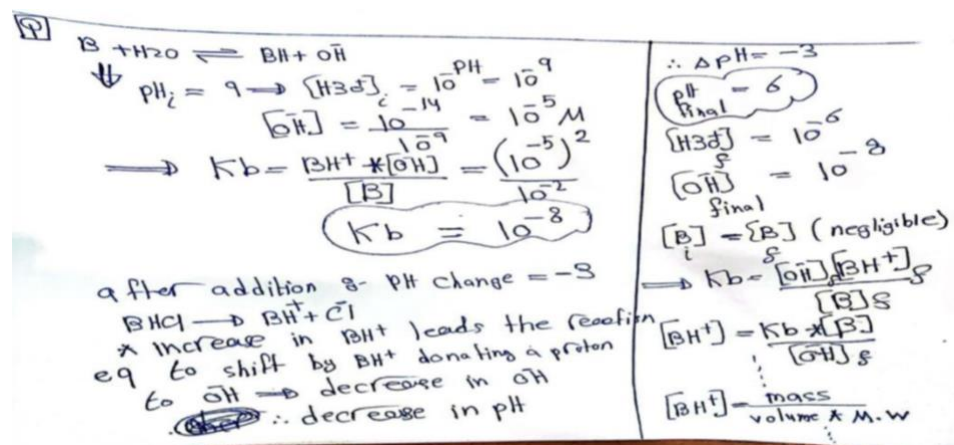 Q
B + H2O ⇌ BH + OH⁻
⇓ pHᵢ = 9 → [H3O⁺]ᵢ = 10^-PH = 10⁻⁹
[OH⁻] = 10⁻¹⁴ / 10⁻⁹ = 10⁻⁵ M
⟹ Kb = BH⁺ * [OH⁻] / [B] = (10⁻⁵)² / 10⁻²
Kb = 10⁻⁸
after addition :- PH change = -3
BHCl → BH⁺ + Cl⁻
* increase in BH⁺ leads the reaction
eq to shift by BH⁺ donating a proton
to OH⁻ ⇒ decrease in OH⁻
∴ decrease in pH
∴ ΔpH = -3
pH final = 6
[H3O⁺]f = 10⁻⁶
[OH⁻] final = 10⁻⁸
[B]i = [B]f (negligible)
⟹ Kb = [OH⁻]f [BH⁺]f / [B]f
[BH⁺] = Kb * [B] / [OH⁻]f
[BH⁺] = mass / volume * M.W